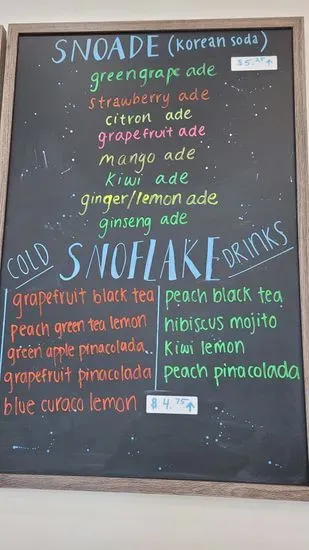 SNOADE (Korean soda)
greengrape ade
$5.25↑
strawberry ade
citron ade
grapefruit ade
mango ade
kiwi ade
ginger/lemon ade
ginseng ade
COLD SNOFLAKE DRINKS
grapefruit black tea
peach green tea lemon
green apple pinacolada..
grapefruit pinacolada
blue curaco lemon $4.75↑
peach black tea
hibiscus mojito
Kiwi lemon
peach pinacolada